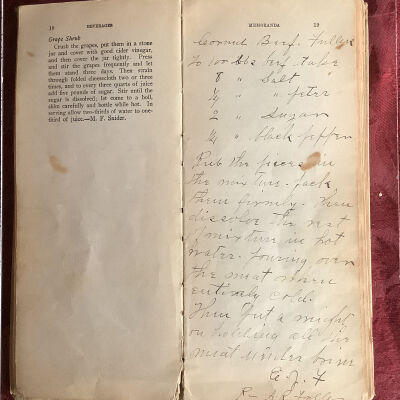 18 BEVERAGES
Grape Shrub
Crush the grapes, put them in a stone
jar and cover with good cider vinegar,
and then cover the jar tightly. Press
and stir the grapes frequently and let
them stand three days. Then strain
through folded cheesecloth two or three
times, and to every three quarts of juice
add five pounds of sugar. Stir until the
sugar is dissolved; let come to a boil,
skim carefully and bottle while hot. In
serving allow two-thirds of water to one-
third of juice.—M. F. Snider.
MEMORANDA 19
Corned Beef.
To 100 lbs beef take
8 " Salt "
¼ " " peter
2 " Sugar
¼ " black pepper
Rub the pieces in
the mixture. Pack
them firmly. Then
dissolve the rest
of mixture in hot
water. Pouring over
the meat when
entirely cold.
Then put a weight
on holding all the
meat under brine